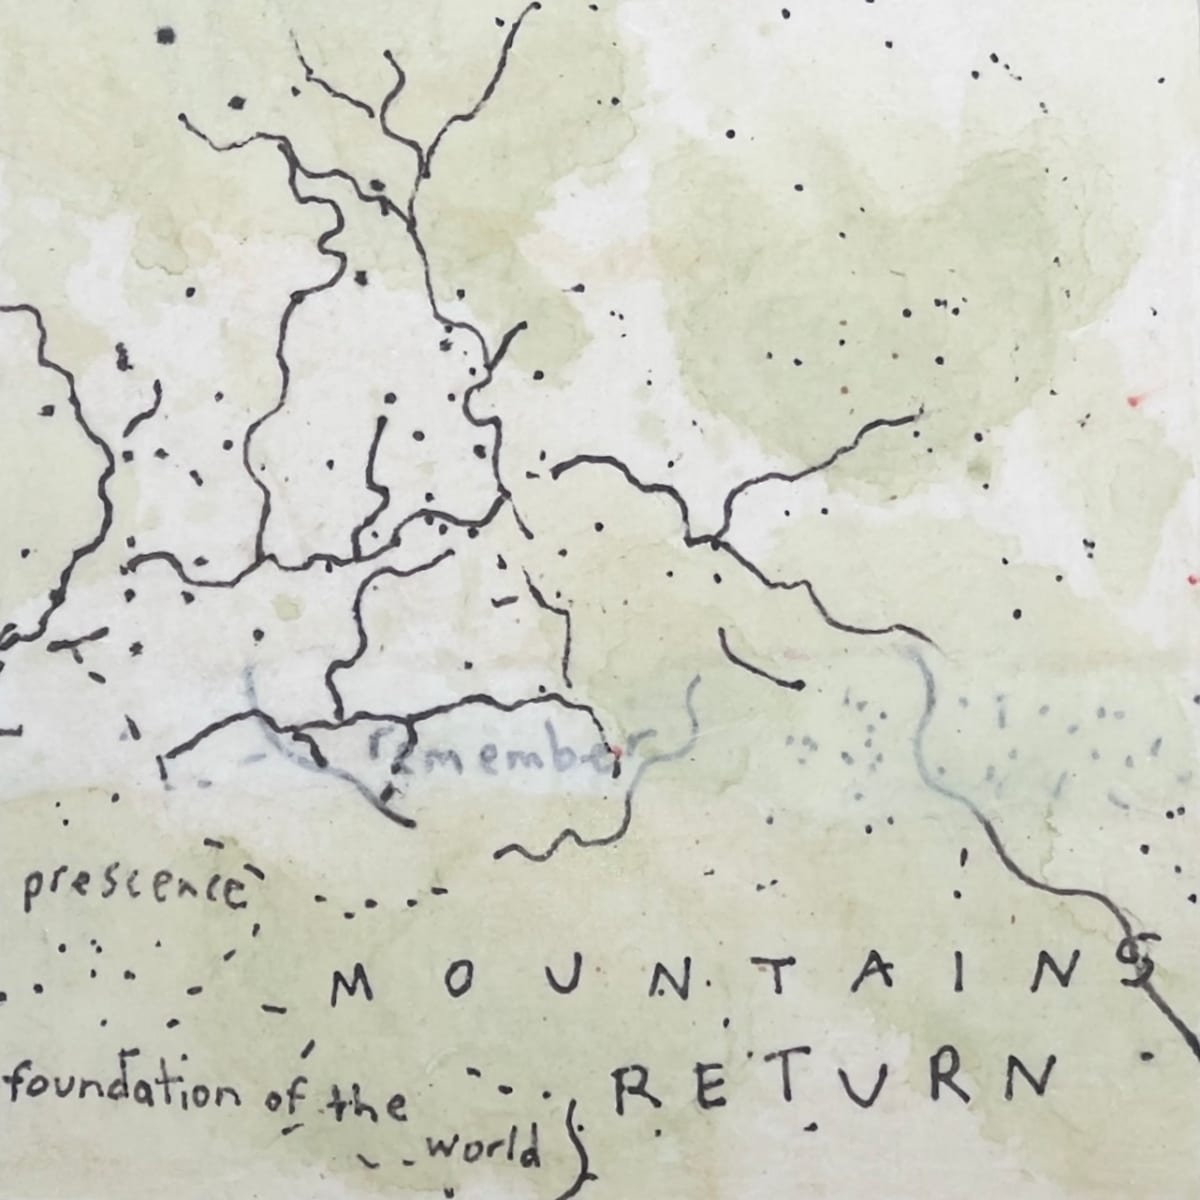 remember
prescence
MOUNTAINS
foundation of the
RETURN
world